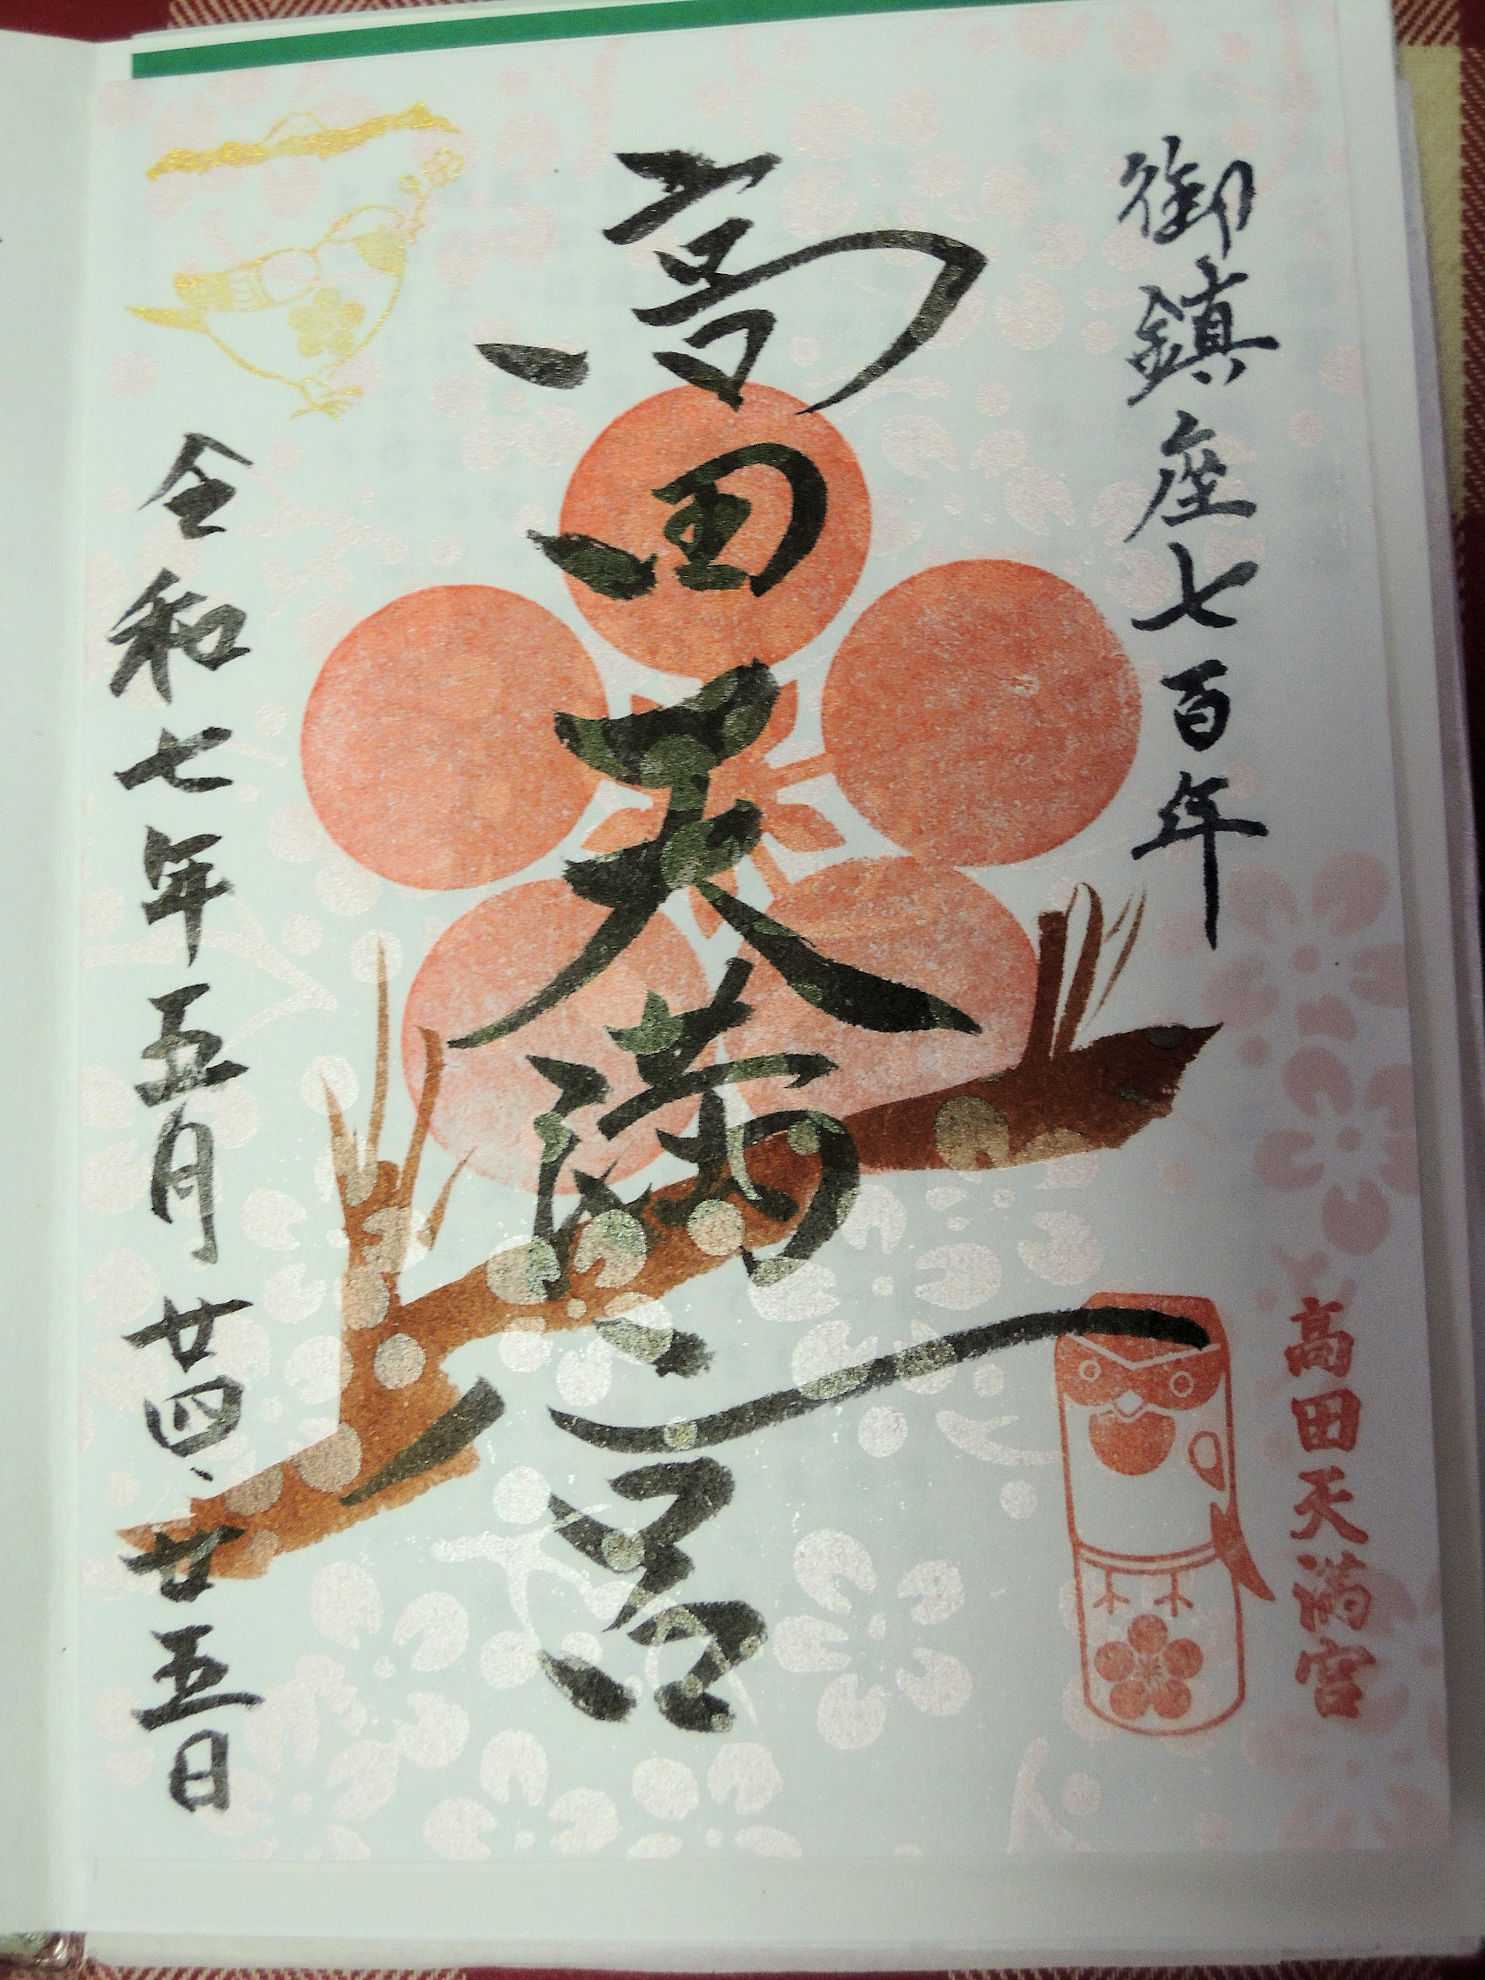 御鎮座七百年
高田天満宮
高田天満宮
令和七年五月廿四、廿五日